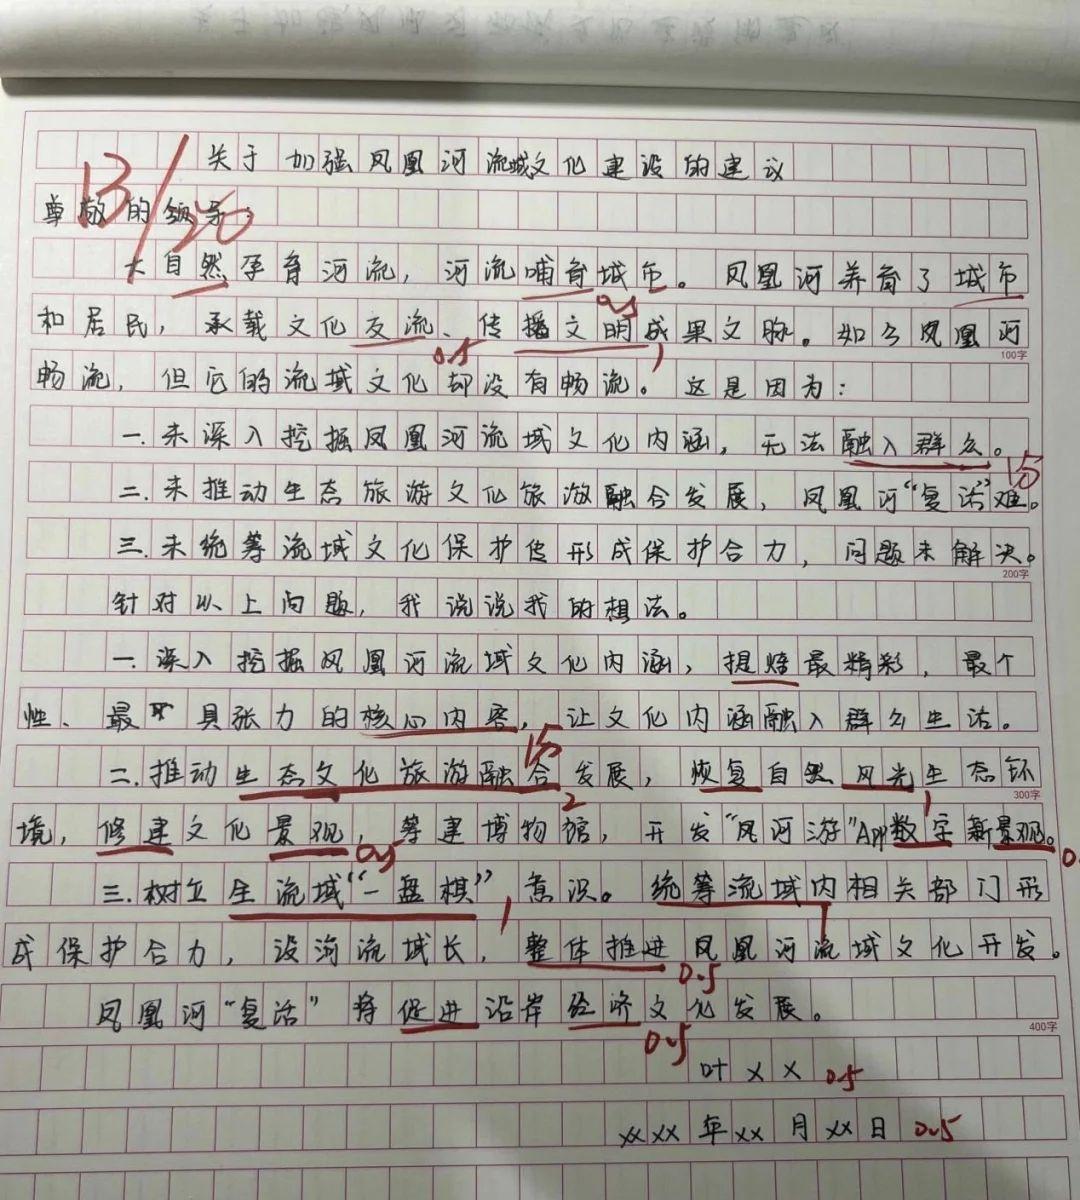 关于加强凤凰河流域文化建设的建议
13/20
尊敬的领导:
大自然孕育河流,河流哺育城市。凤凰河养育了城市
0.5
和居民,承载文化交流、传播文明成果文脉。如今凤凰河
0.5 1
100字
畅流,但它的流域文化却没有畅流。这是因为:
一.未深入挖掘凤凰河流域文化内涵,无法融入群众。
15
二.未推动生态旅游文化旅游融合发展,凤凰河“复活”难。
三.未统筹流域文化保护使形成保护合力,问题未解决。
200字
针对以上问题,我说说我的想法。
一.深入挖掘凤凰河流域文化内涵,提炼最精彩,最个
性、最具张力的核心内容,让文化内涵融入群众生活。
15
二.推动生态文化旅游融合发展,恢复自然风光生态环
2 1
300字
境,修建文化景观,筹建博物馆,开发“凤河游”App数字新景观。
0.5
三.树立生流域“一盘棋”意识。统筹流域内相关部门形
1
成保护合力,设河流域长,整体推进凤凰河流域文化开发。
0.5
凤凰河“复活”将促进沿岸经济文化发展。
400字
0.5
叶××0.5
××××年××月××日0.5